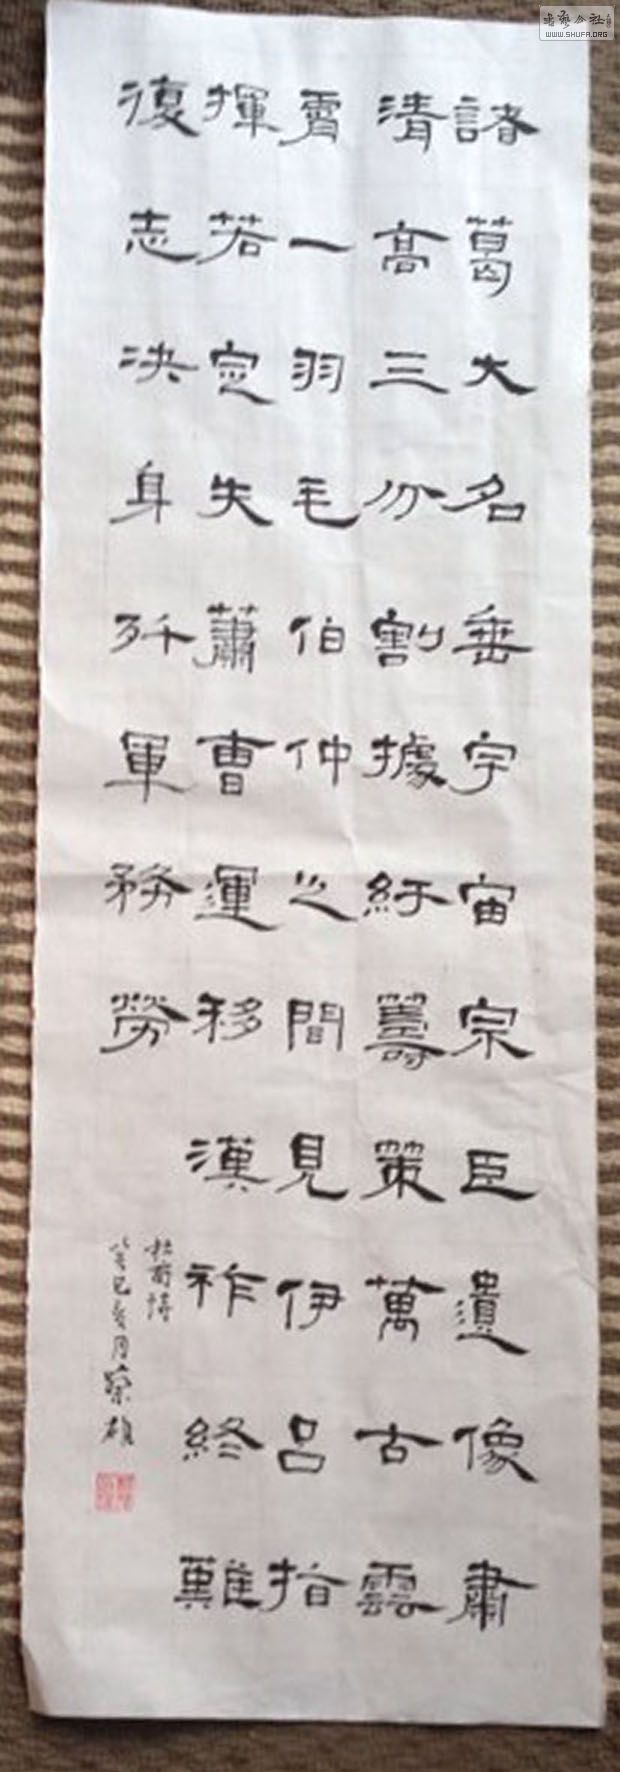 諸葛大名垂宇宙宗臣遺像肅
清高三分割據紆籌策萬古雲
霄一羽毛伯仲之間見伊呂指
揮若定失蕭曹運移漢祚終難
復志決身殲軍務勞
杜甫詩
癸巳 月
WWW.SHUFA.ORG